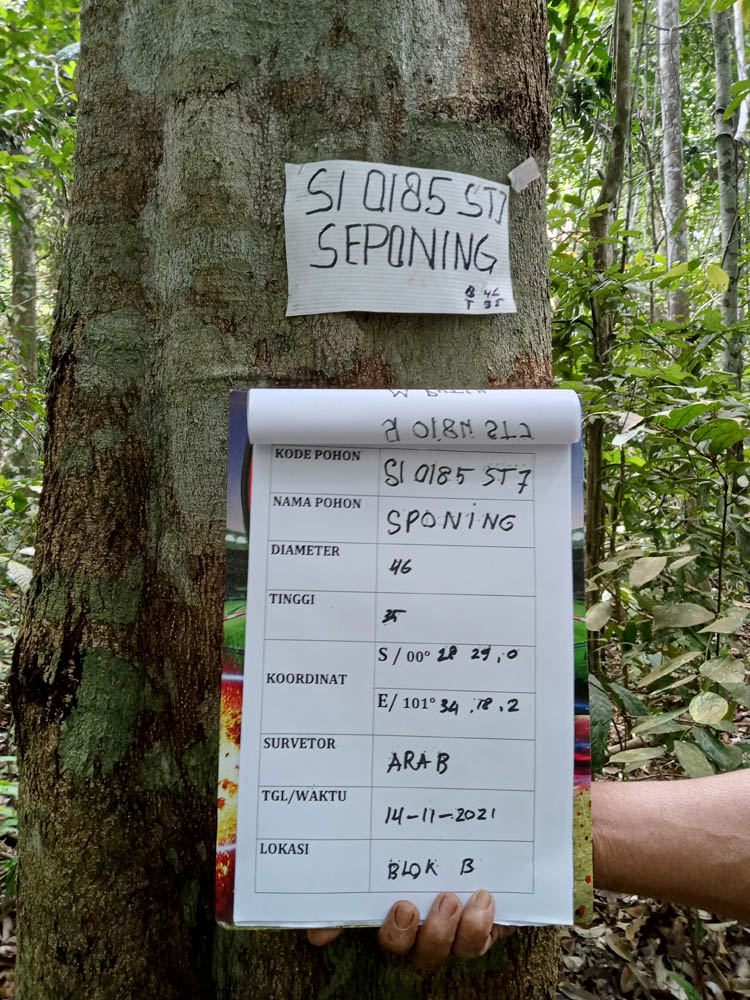 SI 0185 ST7
SEPONING
B 46
T 35
KODE POHON SI 0185 ST7
NAMA POHON SPONING
DIAMETER 46
TINGGI 35
KOORDINAT S / 00° 28 29,0
E/ 101° 34 .18.2
SURVETOR ARAB
TGL/WAKTU 14-11-2021
LOKASI BLOK B